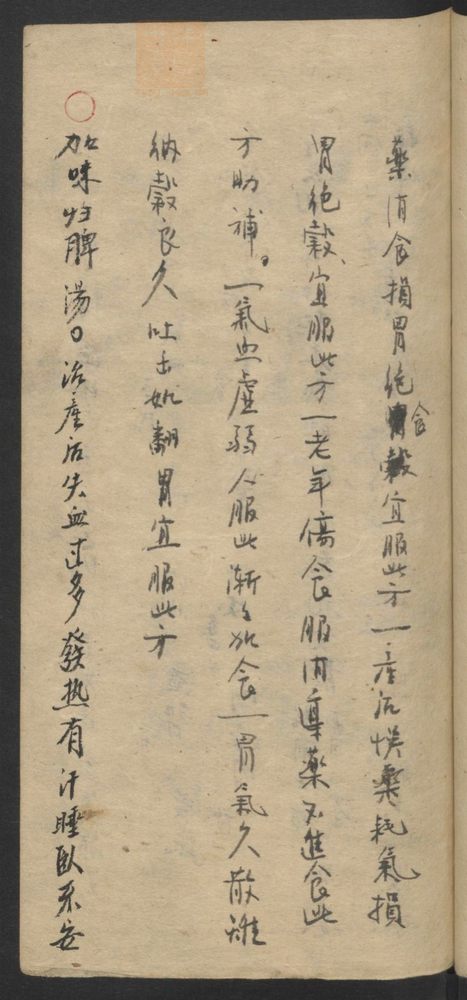 藥消食損胃絕食穀宜服此方一產后悞藥耗氣損
胃絕穀、宜服此方一老年傷食服消導藥不進食此
方助補。一氣血虛弱人服此漸〻加食一胃氣久敝難
納穀良久吐出如翻胃宜服此方
○加味归脾湯。治產后失血过多發热有汗睡臥不安